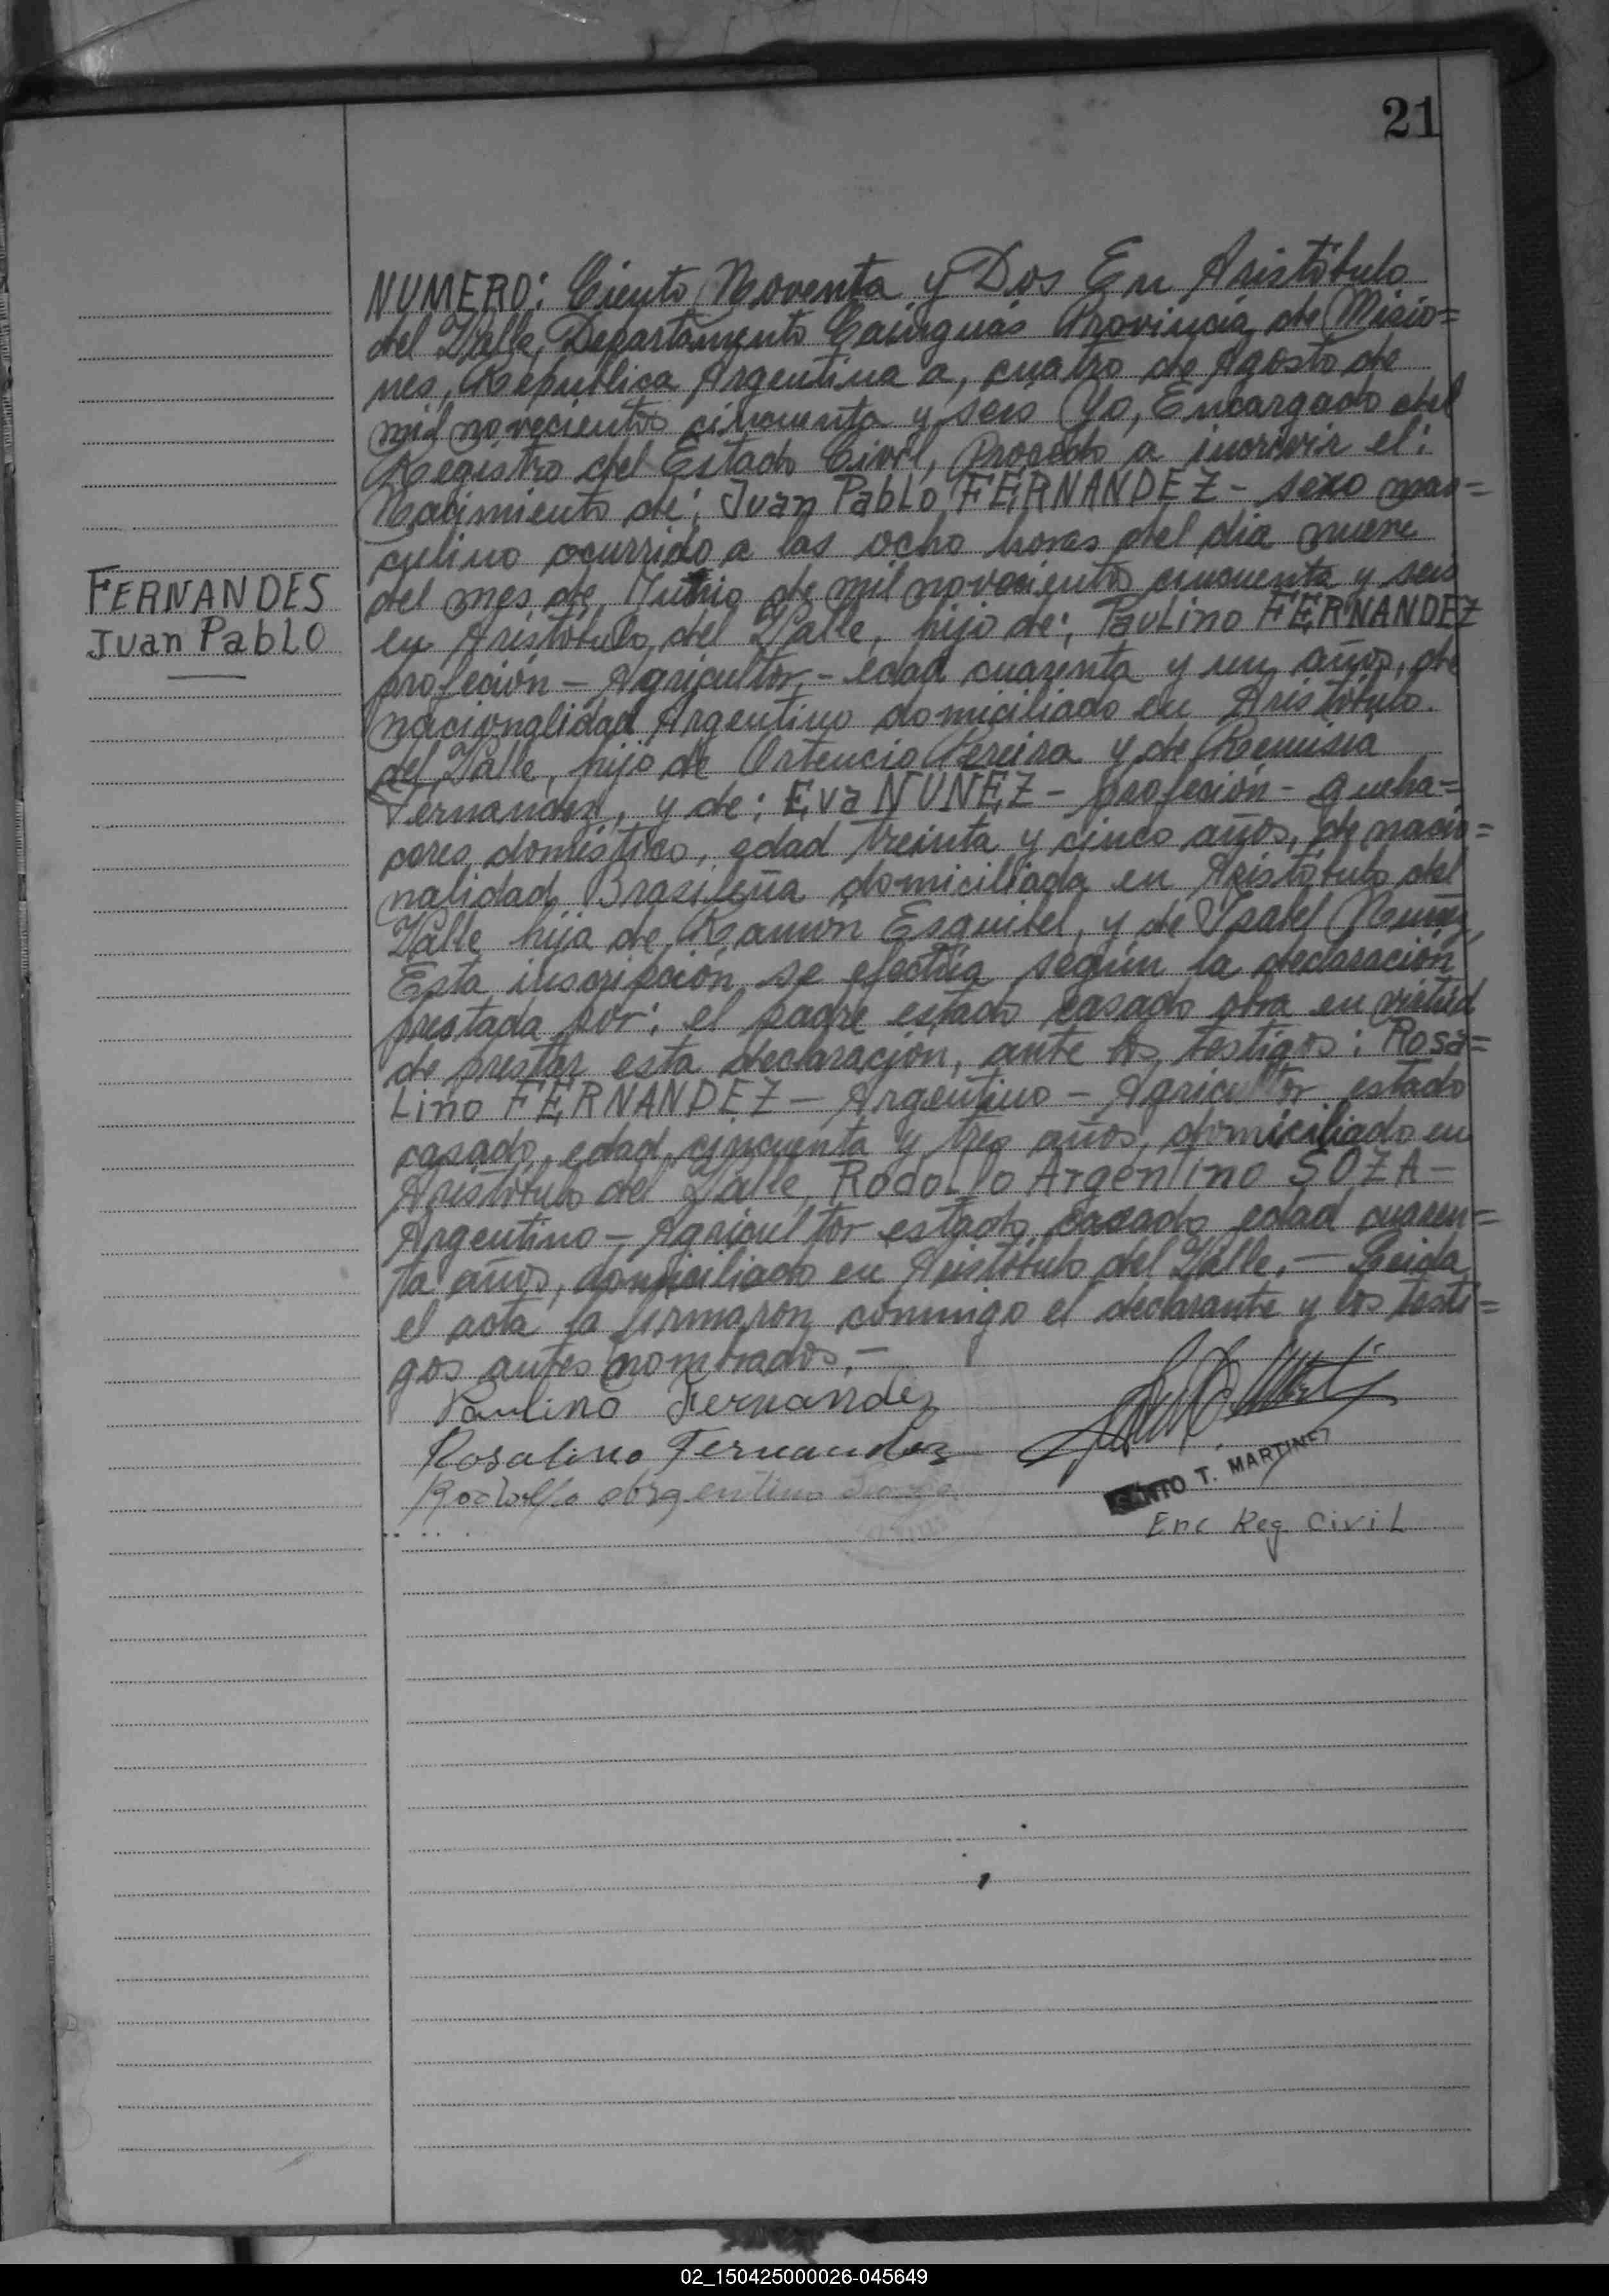 21
NUMERO: Ciento Noventa y Dos En Aristóbulo
del Valle, Departamento Cainguás Provincia de Misio=
nes, República Argentina a, cuatro de Agosto de
mil novecientos cincuenta y seis Yo, Encargado del
Registro del Estado Civil, Procedo a incrivir el:
Nacimiento de: Juan Pablo FERNANDEZ - sexo mas=
culino ocurrido a las ocho horas del dia nueve
del mes de, de mil novecientos cincuenta y seis
FERNANDES
Juan Pablo
en Aristóbulo del Valle, hijo de: Paulino FERNANDEZ
profeción - Agricultor - edad cuarenta y un años, de
nacionalidad Argentino domiciliado en Aristóbulo
del Valle, hijo de Ortencio Pereira y de Remisia
Fernandez, y de: Eva NUNEZ - profeción - queha=
cores doméstico, edad treinta y cinco años, de nacio=
nalidad Brasileña domiciliada en Aristóbulo del
Valle hija de Ramón Esquibel, y de Isabel Nuñez,
Esta inscripción se efectúa según la declaración
prestada por: el padre estado casado obra en virtud
de prestar esta declaración, ante los testigos: Rosa=
Lino FERNANDEZ - Argentino - Agricultor estado
casado, edad cincuenta y tres años, domiciliado en
Aristóbulo del Valle, Rodolfo Argentino SOZA -
Argentino - Agricultor estado casado edad cuaren=
ta años, domiciliado en Aristóbulo del Valle. - Leida
el acta la firmaron conmigo el declarante y los testi=
gos antes nombrados. -
Paulino Fernandez
Rosalino Fernandez
Rodolfo Argentino
SANTO T. MARTINEZ
Enc Reg Civil
02_150425000026-045649